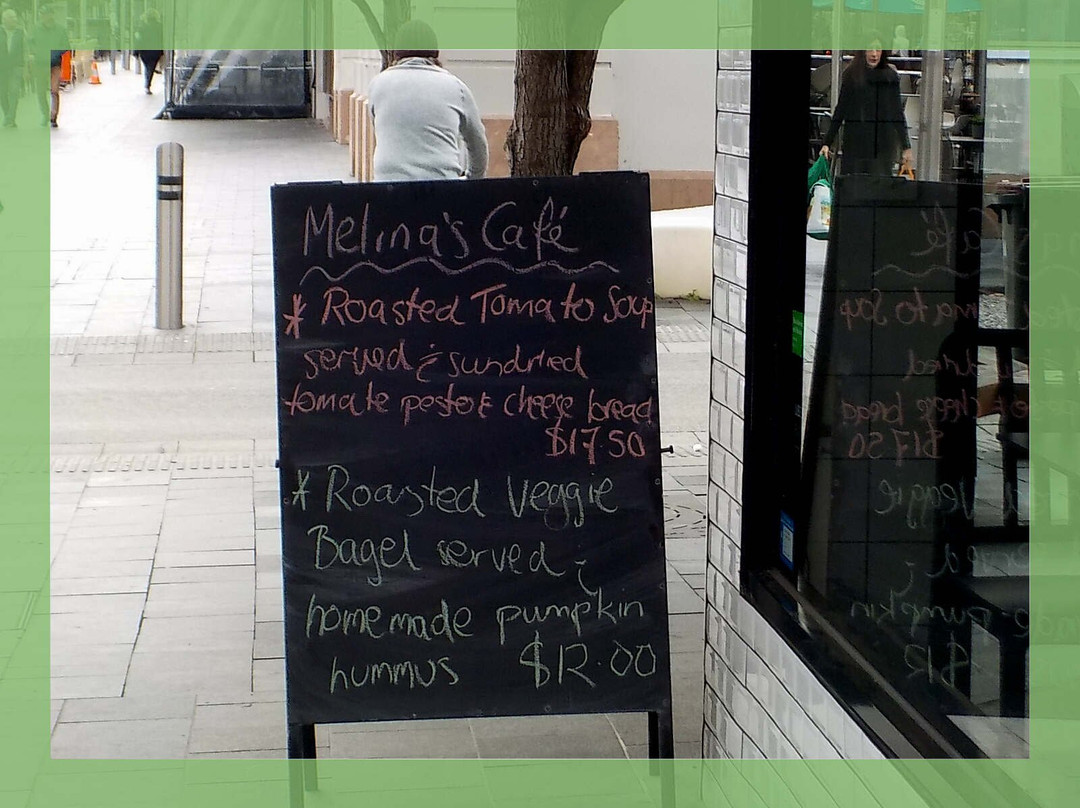 Melina's Café
* Roasted Tomato Soup
served & sundried
tomate pesto & cheese bread
$17.50
* Roasted Veggie
Bagel served &
homemade pumpkin
hummus $12.00